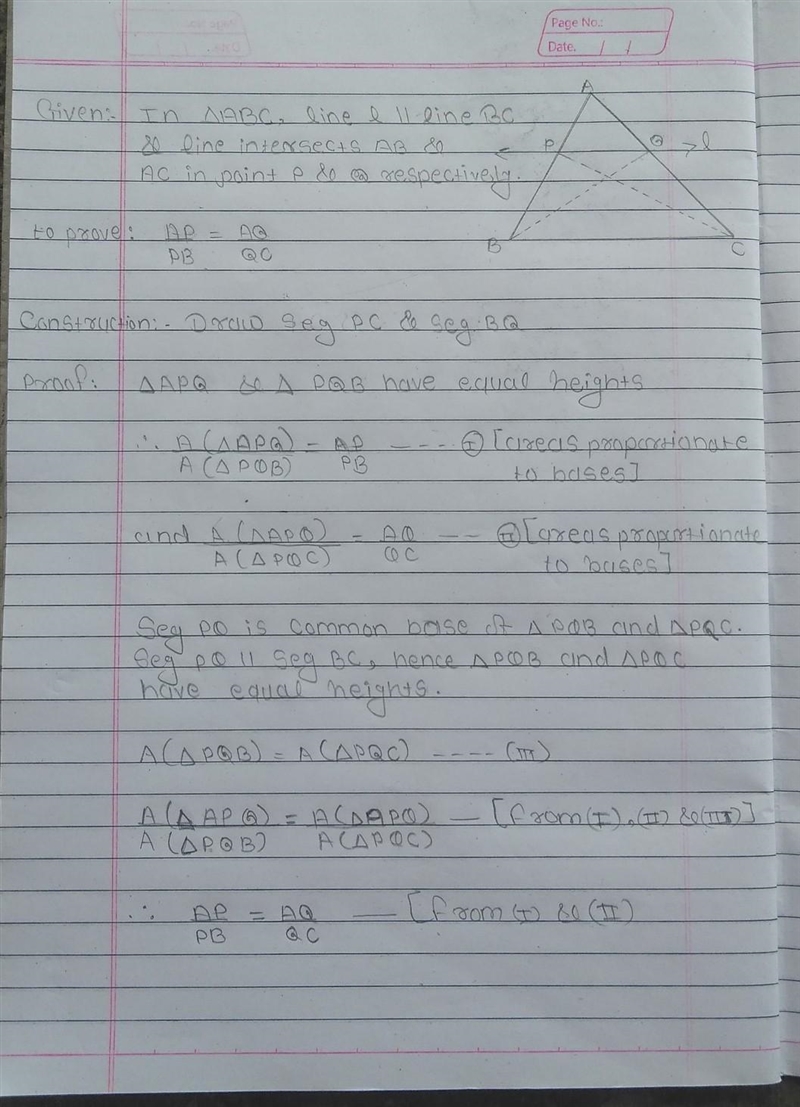 Page No.:
Date. / /
Given:- In △ABC, line l || line BC
& line intersects AB &
AC in point P & Q respectively.
A
P Q l
B C
to prove: AP/PB = AQ/QC
Construction:- Draw Seg PC & Seg BQ
Proof: △APQ & △ PQB have equal heights
∴ A(△APQ)/A(△PQB) = AP/PB ---- (I) [areas proportionate
to bases]
and A(△APQ)/A(△PQC) = AQ/QC --- (II) [areas proportionate
to bases]
Seg PQ is common base of △PQB and △PQC.
Seg PQ || Seg BC, hence △PQB and △PQC
have equal heights.
A(△PQB) = A(△PQC) ---- (III)
A(△APQ)/A(△PQB) = A(△APQ)/A(△PQC) — [from (I), (II) & (III)]
∴ AP/PB = AQ/QC — [from (I) & (II)